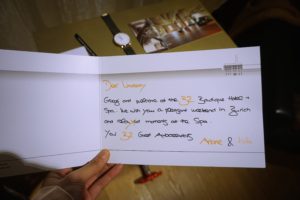 Dear
Greetings and welcome at the B2 Boutique Hotel +
Spa. We wish you a pleasant weekend in Zurich
and relaxing moments at the Spa.
Your B2 Guest Ambassadors
&